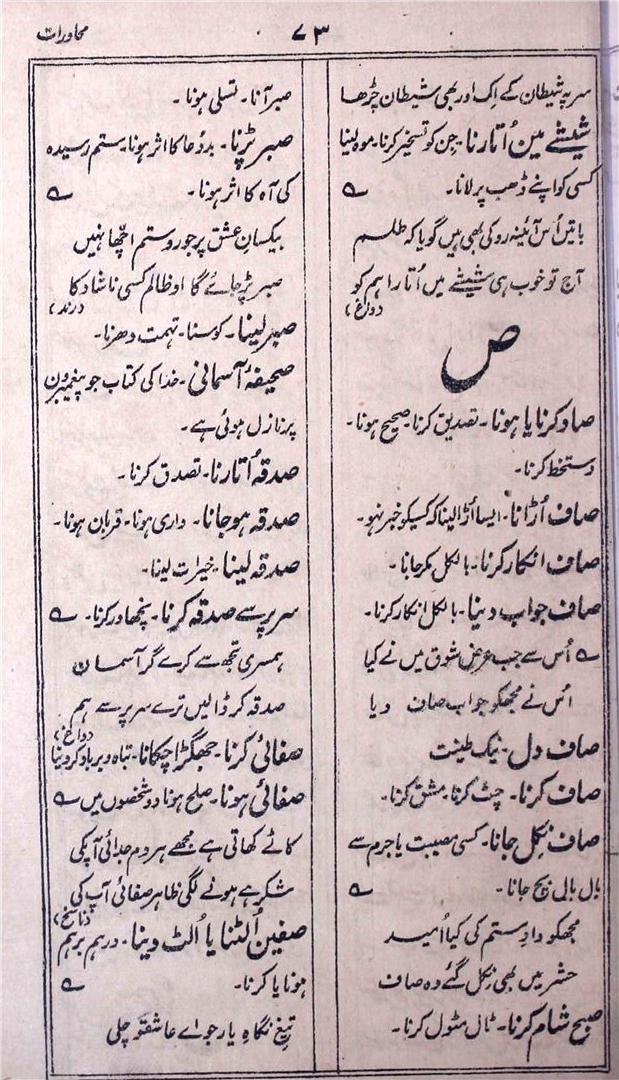 محاورات
۷۳
سر پہ شیطان کے اک اور بھی شیطان چڑھا
شیشے مین اُتارنا۔ جِن کو تسخیر کرنا۔ موہ لینا
کسی کو اپنے ڈھب پر لانا۔ ؎
باتیں اُس آئینہ رو کی بھی ہیں گویا کہ طلسم
آج تو خوب ہی شیشے میں اُتارا ہم کو
(داغ)
ص
صاد کرنا یا ہونا۔ تصدیق کرنا۔ صحیح ہونا۔
دستخط کرنا۔
صاف اُڑانا۔ ایسا اُڑا لینا کہ کسیکو خبر نہو۔
صاف انکار کرنا۔ بالکل مکر جانا۔
صاف جواب دینا۔ بالکل انکار کرنا۔
؎ اُس سے جب عرضِ شوق میں نے کیا
اس نے مجھکو جواب صاف دیا
صاف دل۔ نیک طینت
صاف کرنا۔ چٹ کرنا۔ مشق کرنا۔
صاف نِکل جانا۔ کسی مصیبت یا جرم سے
بال بال بچ جانا۔ ؎
مجھکو دادِ ستم کی کیا اُمید
حشر میں بھی نِکل گئے وہ صاف
صبح شام کرنا۔ ٹال مٹول کرنا۔
صبر آنا۔ تسلی ہونا۔
صبر پڑنا۔ بددُعا کا اثر ہونا۔ ستم رسیدہ
کی آہ کا اثر ہونا۔ ؎
بیکسانِ عشق پر جور و ستم اچّھا نہیں
صبر پڑ جائے گا او ظالم کسی ناشاد کا
(رند)
صبر لینا۔ کوسنا۔ تہمت دھرنا۔
صحیفۂ آسمانی۔ خدا کی کتاب جو پیغمبرون
پر نازل ہوئی ہے۔
صدقہ اُتارنا۔ تصدق کرنا۔
صدقہ ہو جانا۔ واری ہونا۔ قربان ہونا۔
صدقہ لینا۔ خیرات لینا۔
سر پر سے صدقہ کرنا۔ نچھاور کرنا۔ ؎
ہمسری تجھ سے کرے گر آسمان
صدقہ کر ڈالیں ترے سر پر سے ہم
(داغ)
صفائی کرنا۔ جھگڑا چکانا۔ تباہ و برباد کر دینا
صفائی ہونا۔ صلح ہونا دو شخصوں میں ؎
کاٹے کھاتی ہے مجھے ہر دم جدائی آپکی
شکر ہے ہونے لگی ظاہر صفائی آپ کی
(ناسخ)
صفین اُلٹنا یا اُلٹ دینا۔ درہم برہم
ہونا یا کرنا۔ ؎
تیغِ نگاہِ یار جو اے عاشقو چلی